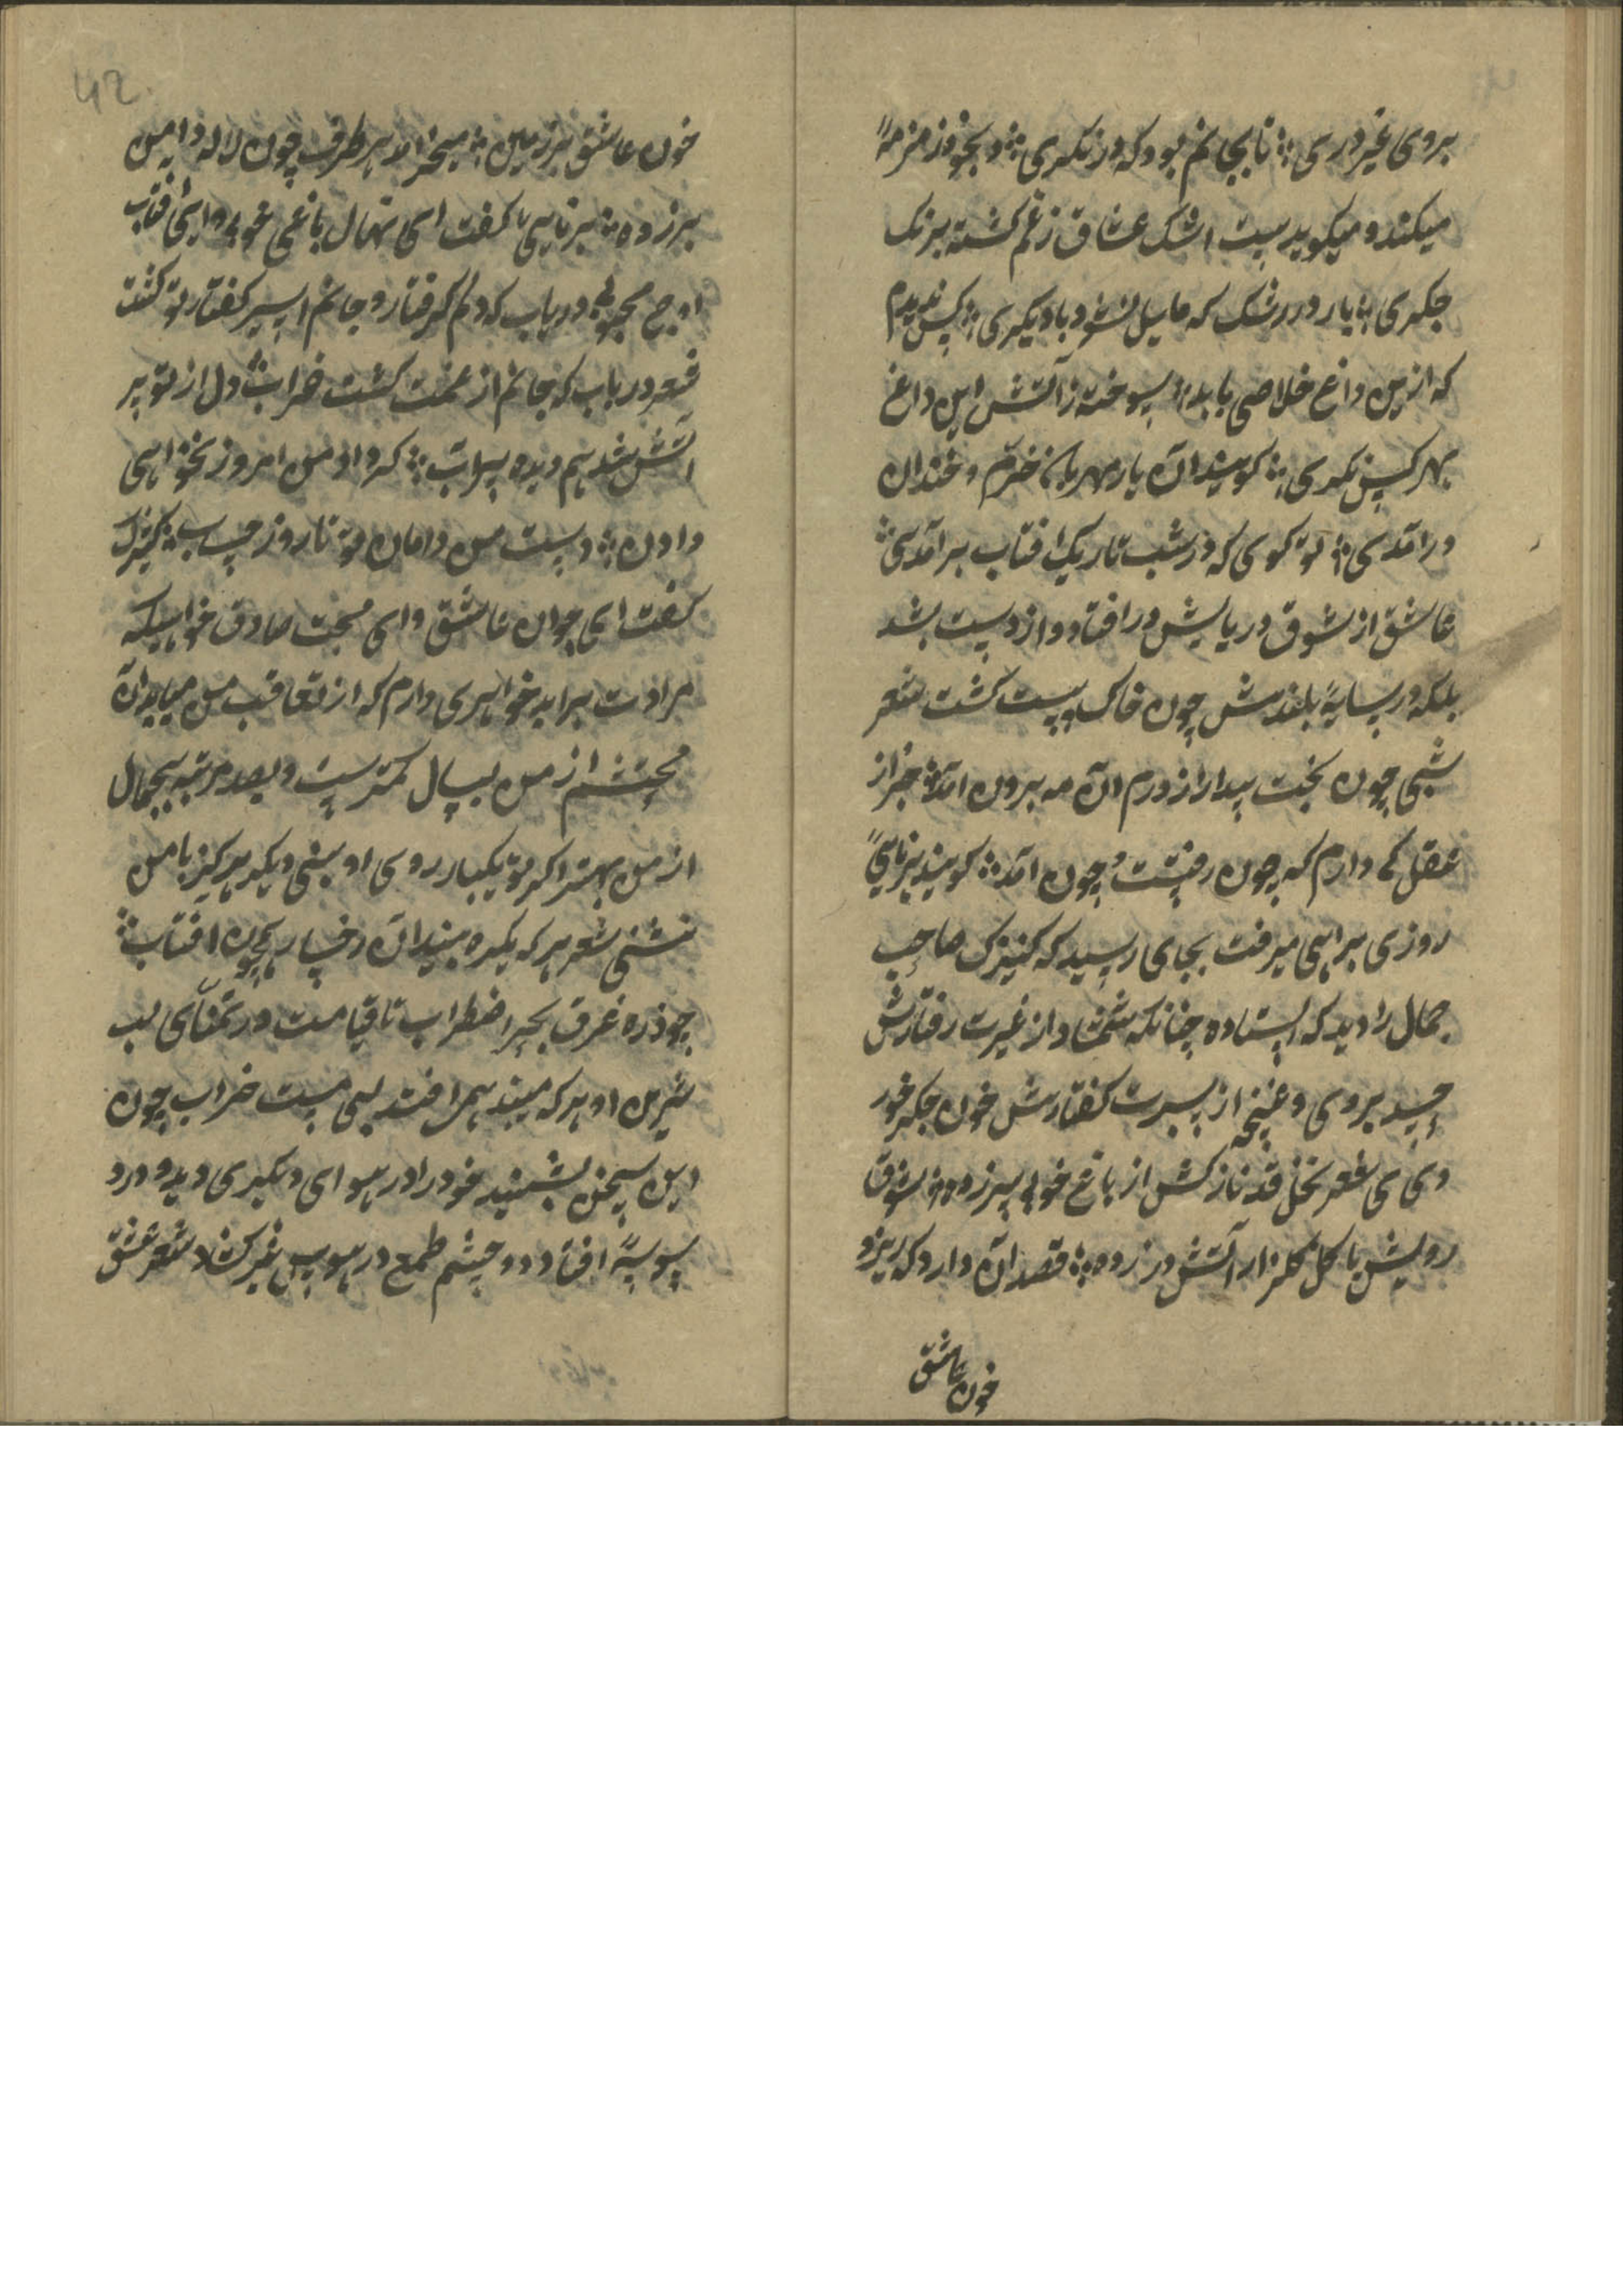 بروی غیر دری ؛ تا بجانم بود که در نکری ؛ و بخود زمزمهٔ
میکند و میکوید بیت اشک عشاق زغم کشته برنک
جکری ؛ یار در رشک که مایل نشود با دیکری ؛ کس ندیدم
که ازین داغ خلاصی یابد ؛ سوخته زآتش این داغ
بهر کس نکری ؛ کویند آن یار مهربان خرّم و خندان
درآمدی ؛ تو کوی که در شب تاریک افتاب برآمدی ؛
عاشق از شوق در پایش درافتاد و از دست بشد
بلکه در سایهٔ بلندش چون خاک پست کشت شعر
شبی چون بخت بیدار از درم آن مه برون آمد ؛ خبر از
عقل کی دارم که چون رفتست و چون آمد ؛ کویند برنایی
روزی براهی میرفت بجای رسید که کنیزک صاحب
جمال را دید که ایستاده چنانکه شمشاد از غیرت رفتارش
بروی و غنچه از حسرت کفتارش خون جکر خور
دی شعر نخل قد نازکش از باغ خوبی سرزده ؛ شوق
رویش با کل کلزار آتش در زده ؛ قصد آن دارد که ریزد
خون عاشق
42
خون عاشق بر زمین ؛ میخرامد هر طرف چون لاله دامن
برزده ؛ برنایی کفت ای نهال باغ خوبی و ای آفتاب
اوج محبوبی دریاب که دلم کرفتار و جانم اسیر کفتار تو کشت
شعر دریاب که جانم از غمت کشت خراب ؛ دل از تو پر
آتش شد هم دیده پرآب ؛ که داد من امروز نخواهی
دادن ؛ دست من و دامان تو تا روز حساب ؛ کنیزک
کفت ای جوان عاشق و ای محبّ صادق خواهی که
مرادت براید خواهری دارم که از تعاقب من میاید آن
محتشم از من بسال کمترست و بصد مرتبه بجمال
از من بهتر اکر تو یکبار روی او بینی دیکر هرکز با من
ننشینی شعر هر که یکره بیند آن رخسار همچون افتاب ؛
چو ذره غرق بحر اضطراب تا قیامت در تمنّای لب
شیرین او هر که بیند همرا افتد بسی مست خراب چون
این سخن بشنید خود را در هوای دیکری دید و در
افتاد و چشم طمع در هوس غیر کشاد شعر عشق